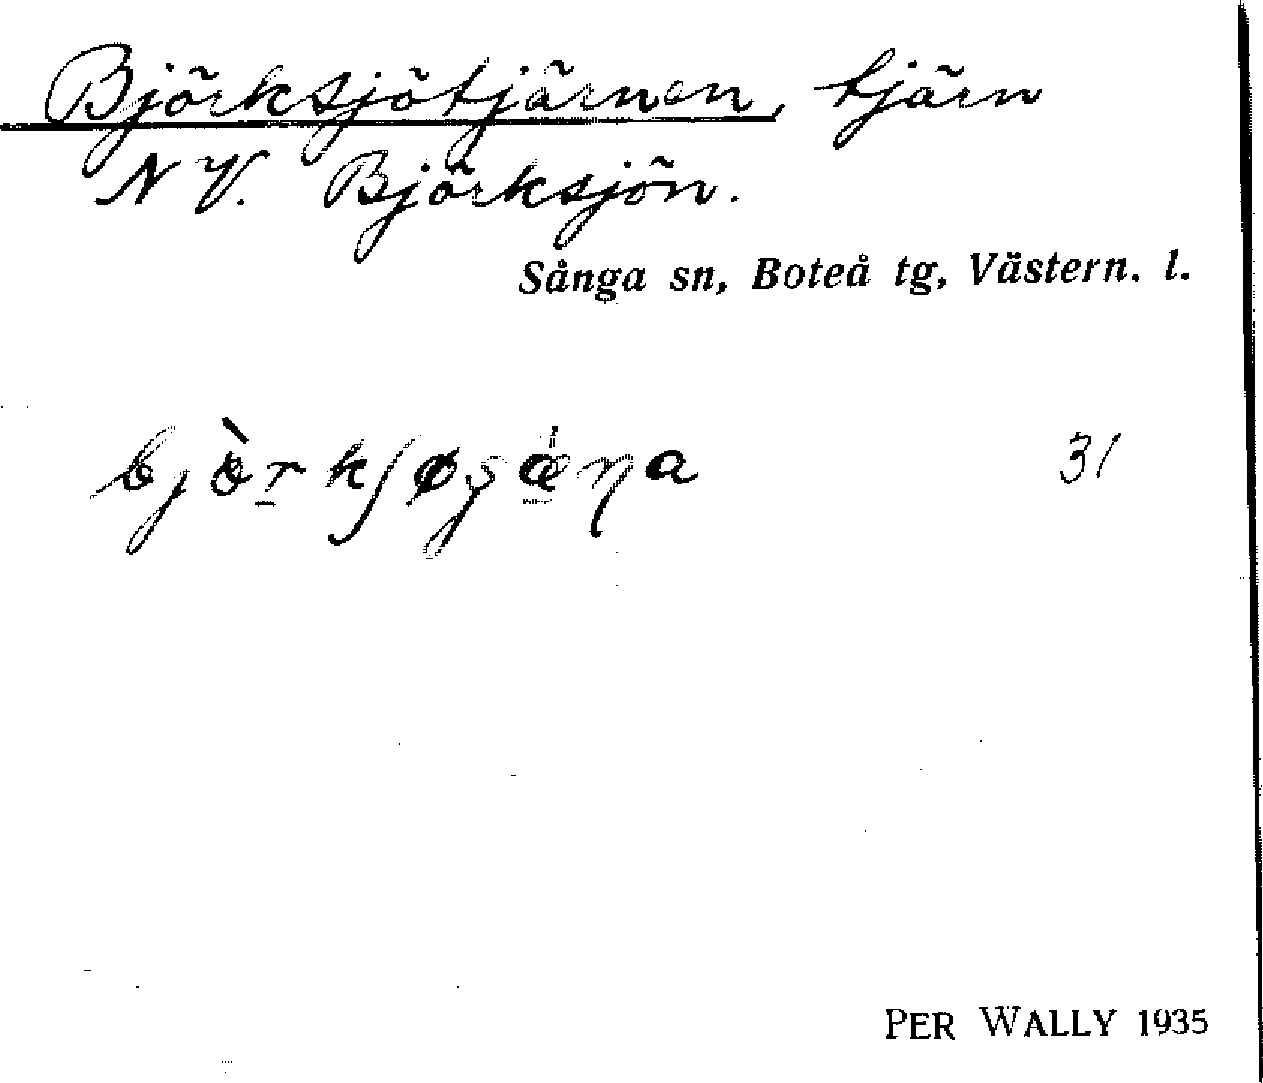 Björksjötjärnen, tjärn
N V. Björksjön.
Sånga sn, Boteå tg, Västern. l.
31
PER WALLY 1935